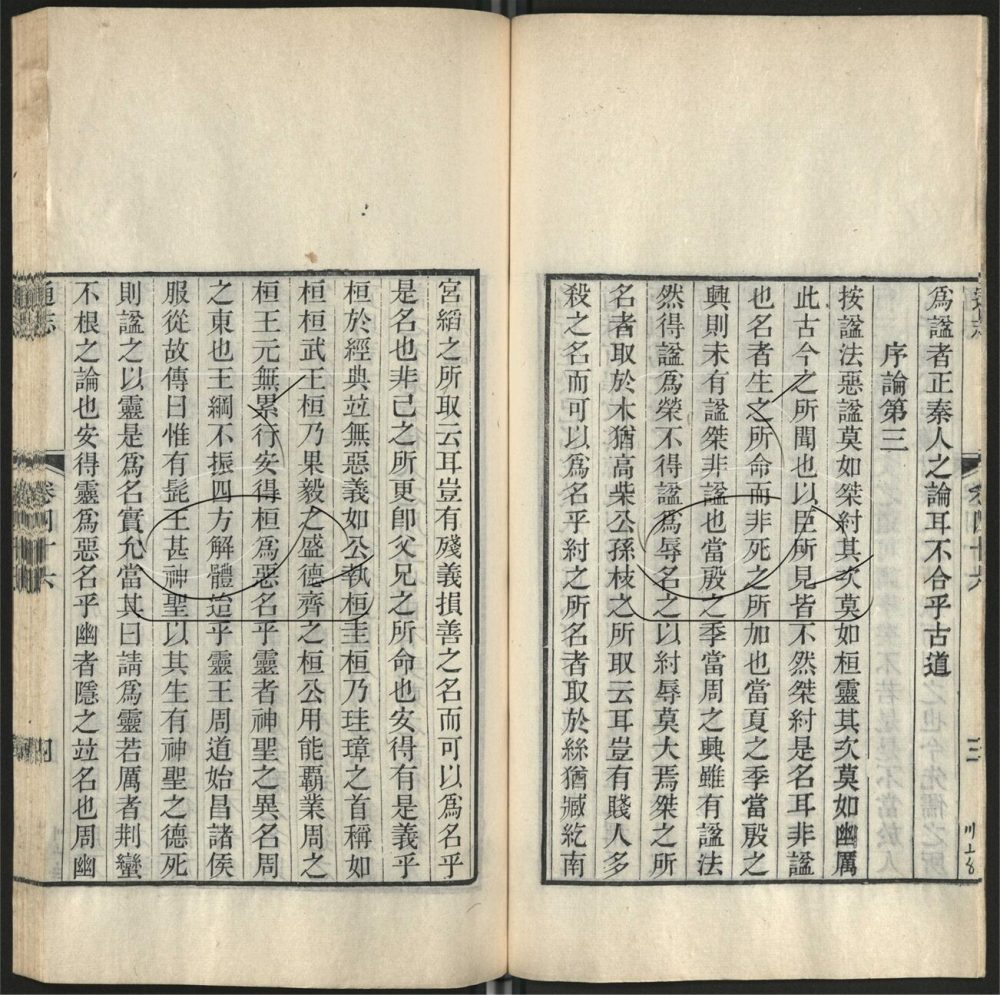 爲諡者正秦人之論耳不合乎古道
序論第三
按諡法惡諡莫如桀紂其次莫如桓靈其次莫如幽厲
此古今之所聞也以臣所見皆不然桀紂是名耳非諡
也名者生之所命而非死之所加也當夏之季當殷之
興則未有諡桀非諡也當殷之季當周之興雖有諡法
然得諡爲榮不得諡爲辱名之以紂辱莫大焉桀之所
名者取於木猶高柴公孫枝之所取云耳豈有賤人多
殺之名而可以爲名乎紂之所名者取於絲猶臧紇南
宮縚之所取云耳豈有殘義損善之名而可以爲名乎
是名也非己之所更卽父兄之所命也安得有是義乎
桓於經典竝無惡義如公執桓圭桓乃珪璋之首稱如
桓桓武王桓乃果毅之盛德齊之桓公用能霸業周之
桓王元無累行安得桓爲惡名乎靈者神聖之異名周
之東也王綱不振四方解體迨乎靈王周道始昌諸侯
服從故傳曰惟有髭王甚神聖以其生有神聖之德死
則諡之以靈是爲名實允當其曰請爲靈若厲者荆蠻
不根之論也安得靈爲惡名乎幽者隱之竝名也周幽
通志
卷四十六
三
四